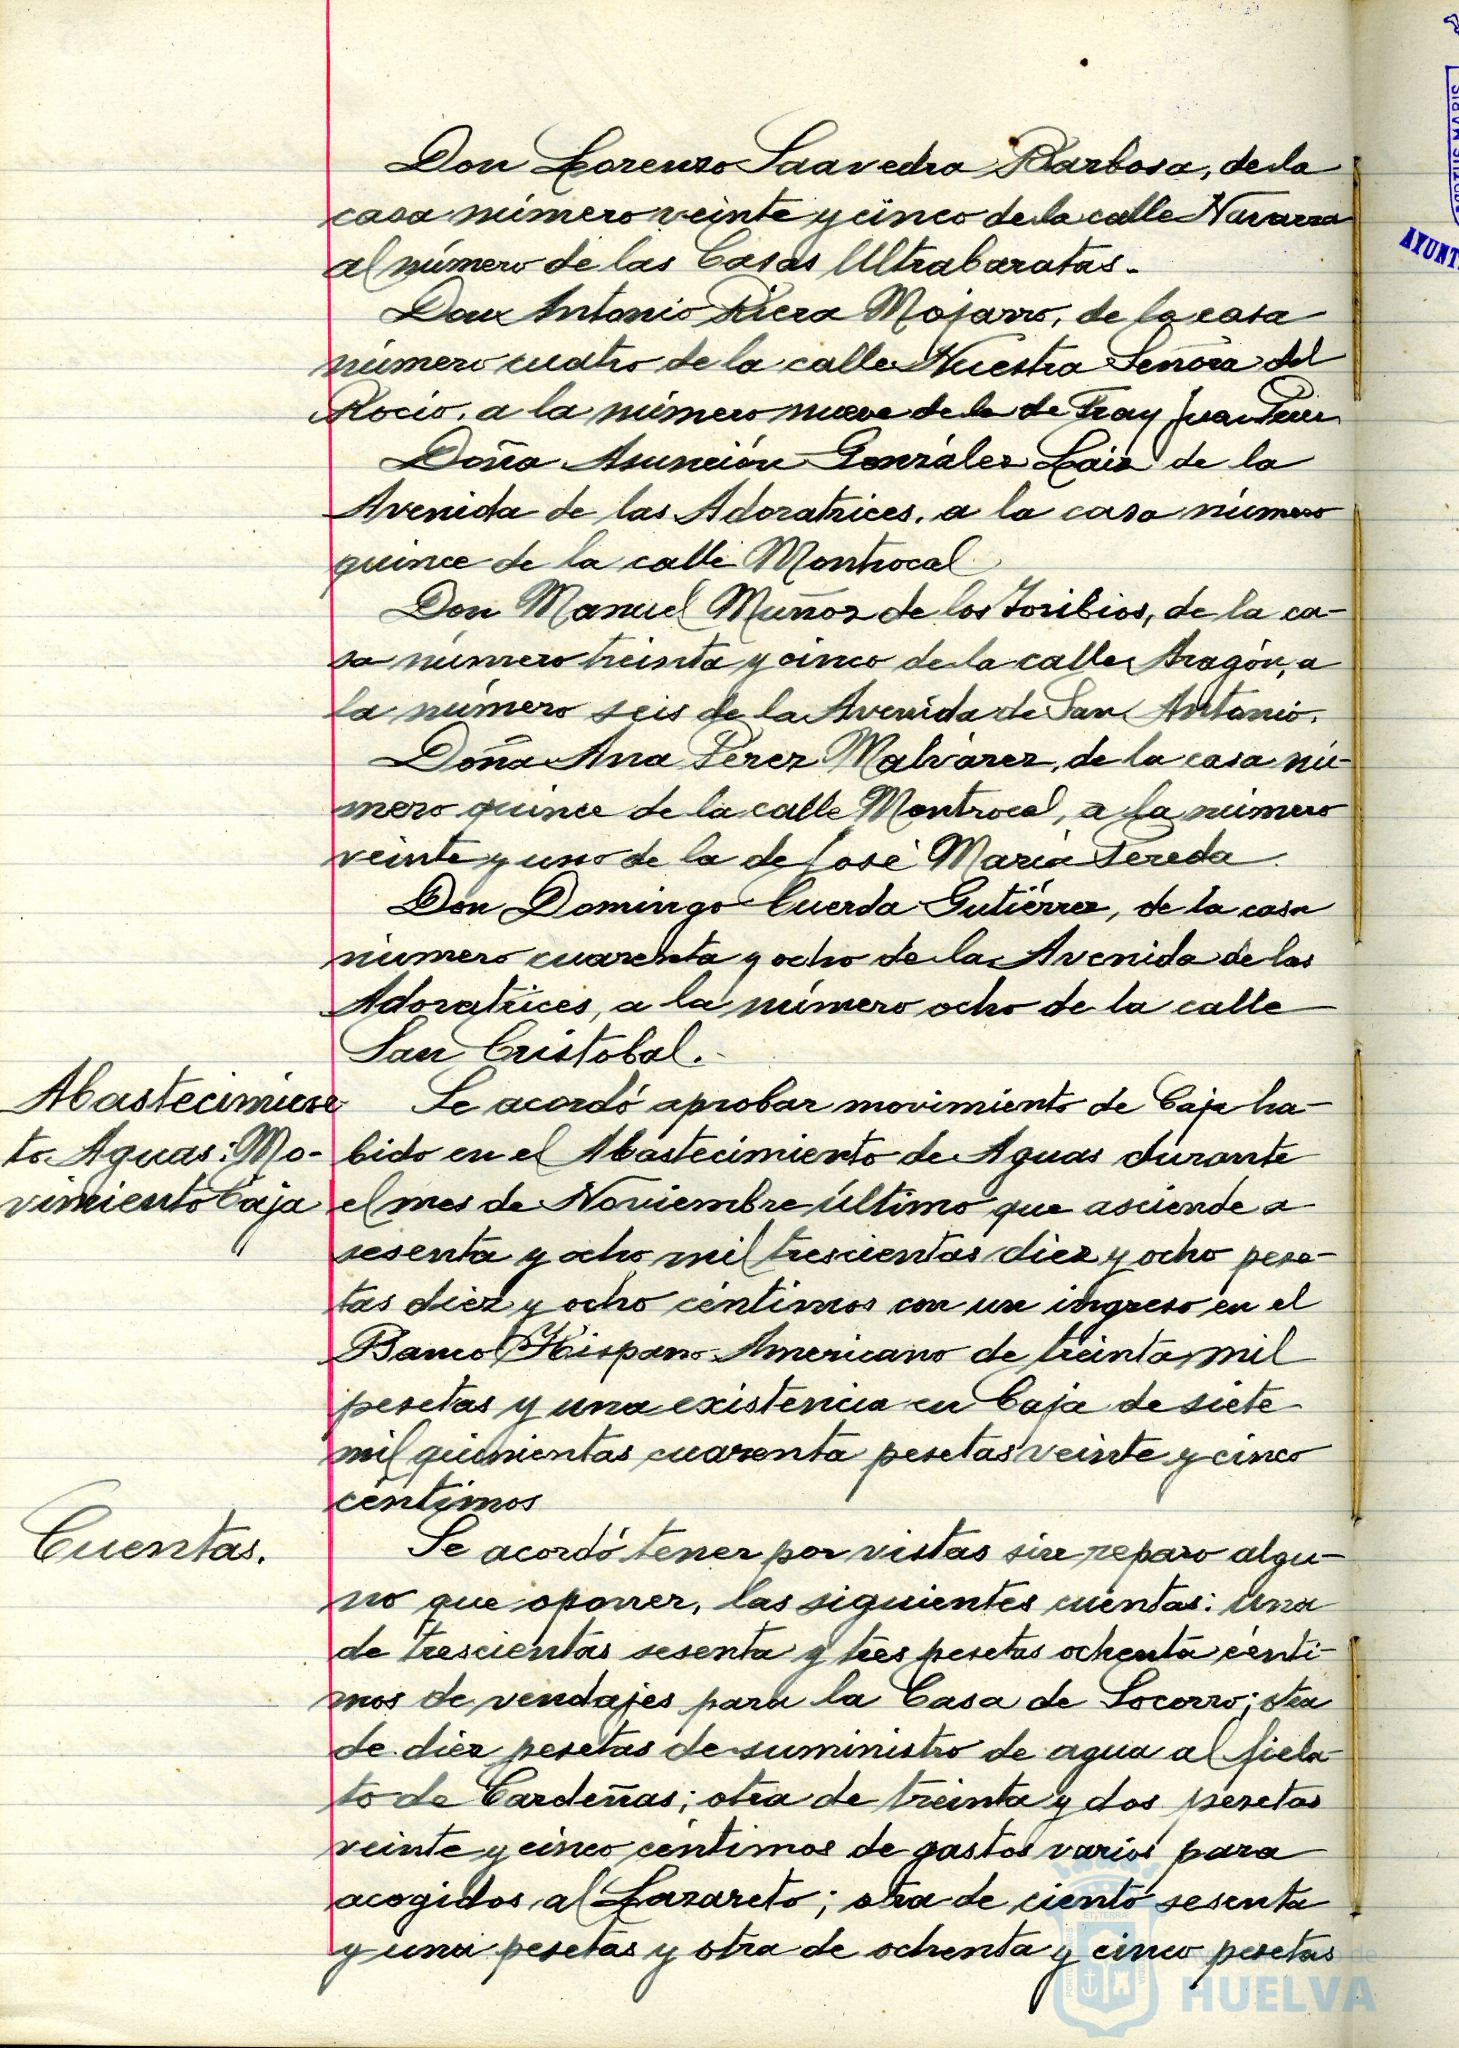 Don Lorenzo Saavedra Barbosa, de la
casa número veinte y cinco de la calle Navarra
al número de las Casas Ultrabaratas.-
Don Antonio Riera Mojarro, de la casa
número cuatro de la calle Nuestra Señora del
Rocio, a la número nueve de la de Fray Juan Perez
Doña Asunción González Laiz de la
Avenida de las Adoratrices, a la casa número
quince de la calle Montrocal
Don Manuel Muñoz de los Toribios, de la ca-
sa número treinta y cinco de la calle Aragón, a
la número seis de la Avenida de San Antonio.
Doña Ana Pérez Malvárez, de la casa nú-
mero quince de la calle Montrocal, a la número
veinte y uno de la de José María Pereda
Don Domingo Cuerda Gutiérrez, de la casa
número cuarenta y ocho de la Avenida de las
Adoratrices, a la número ocho de la calle
San Cristobal.-
Abastecimien
to Aguas: Mo-
vimiento Caja
Se acordó aprobar movimiento de Caja ha-
bido en el Abastecimiento de Aguas durante
el mes de Noviembre último que asciende a
sesenta y ocho mil trescientas diez y ocho pese-
tas diez y ocho céntimos con un ingreso en el
Banco Hispano-Americano de treinta mil
pesetas y una existencia en Caja de siete
mil quinientas cuarenta pesetas veinte y cinco
céntimos
Cuentas.
Se acordó tener por vistas sin reparo algu-
no que oponer, las siguientes cuentas: Una
de trescientas sesenta y tres pesetas ochenta cénti-
mos de vendajes para la Casa de Socorro; otra
de diez pesetas de suministro de agua al fiela-
to de Cardeñas; otra de treinta y dos pesetas
veinte y cinco céntimos de gastos varios para
acogidos al Lazareto; otra de ciento sesenta
y una pesetas y otra de ochenta y cinco pesetas
AYUNT
HUELVA